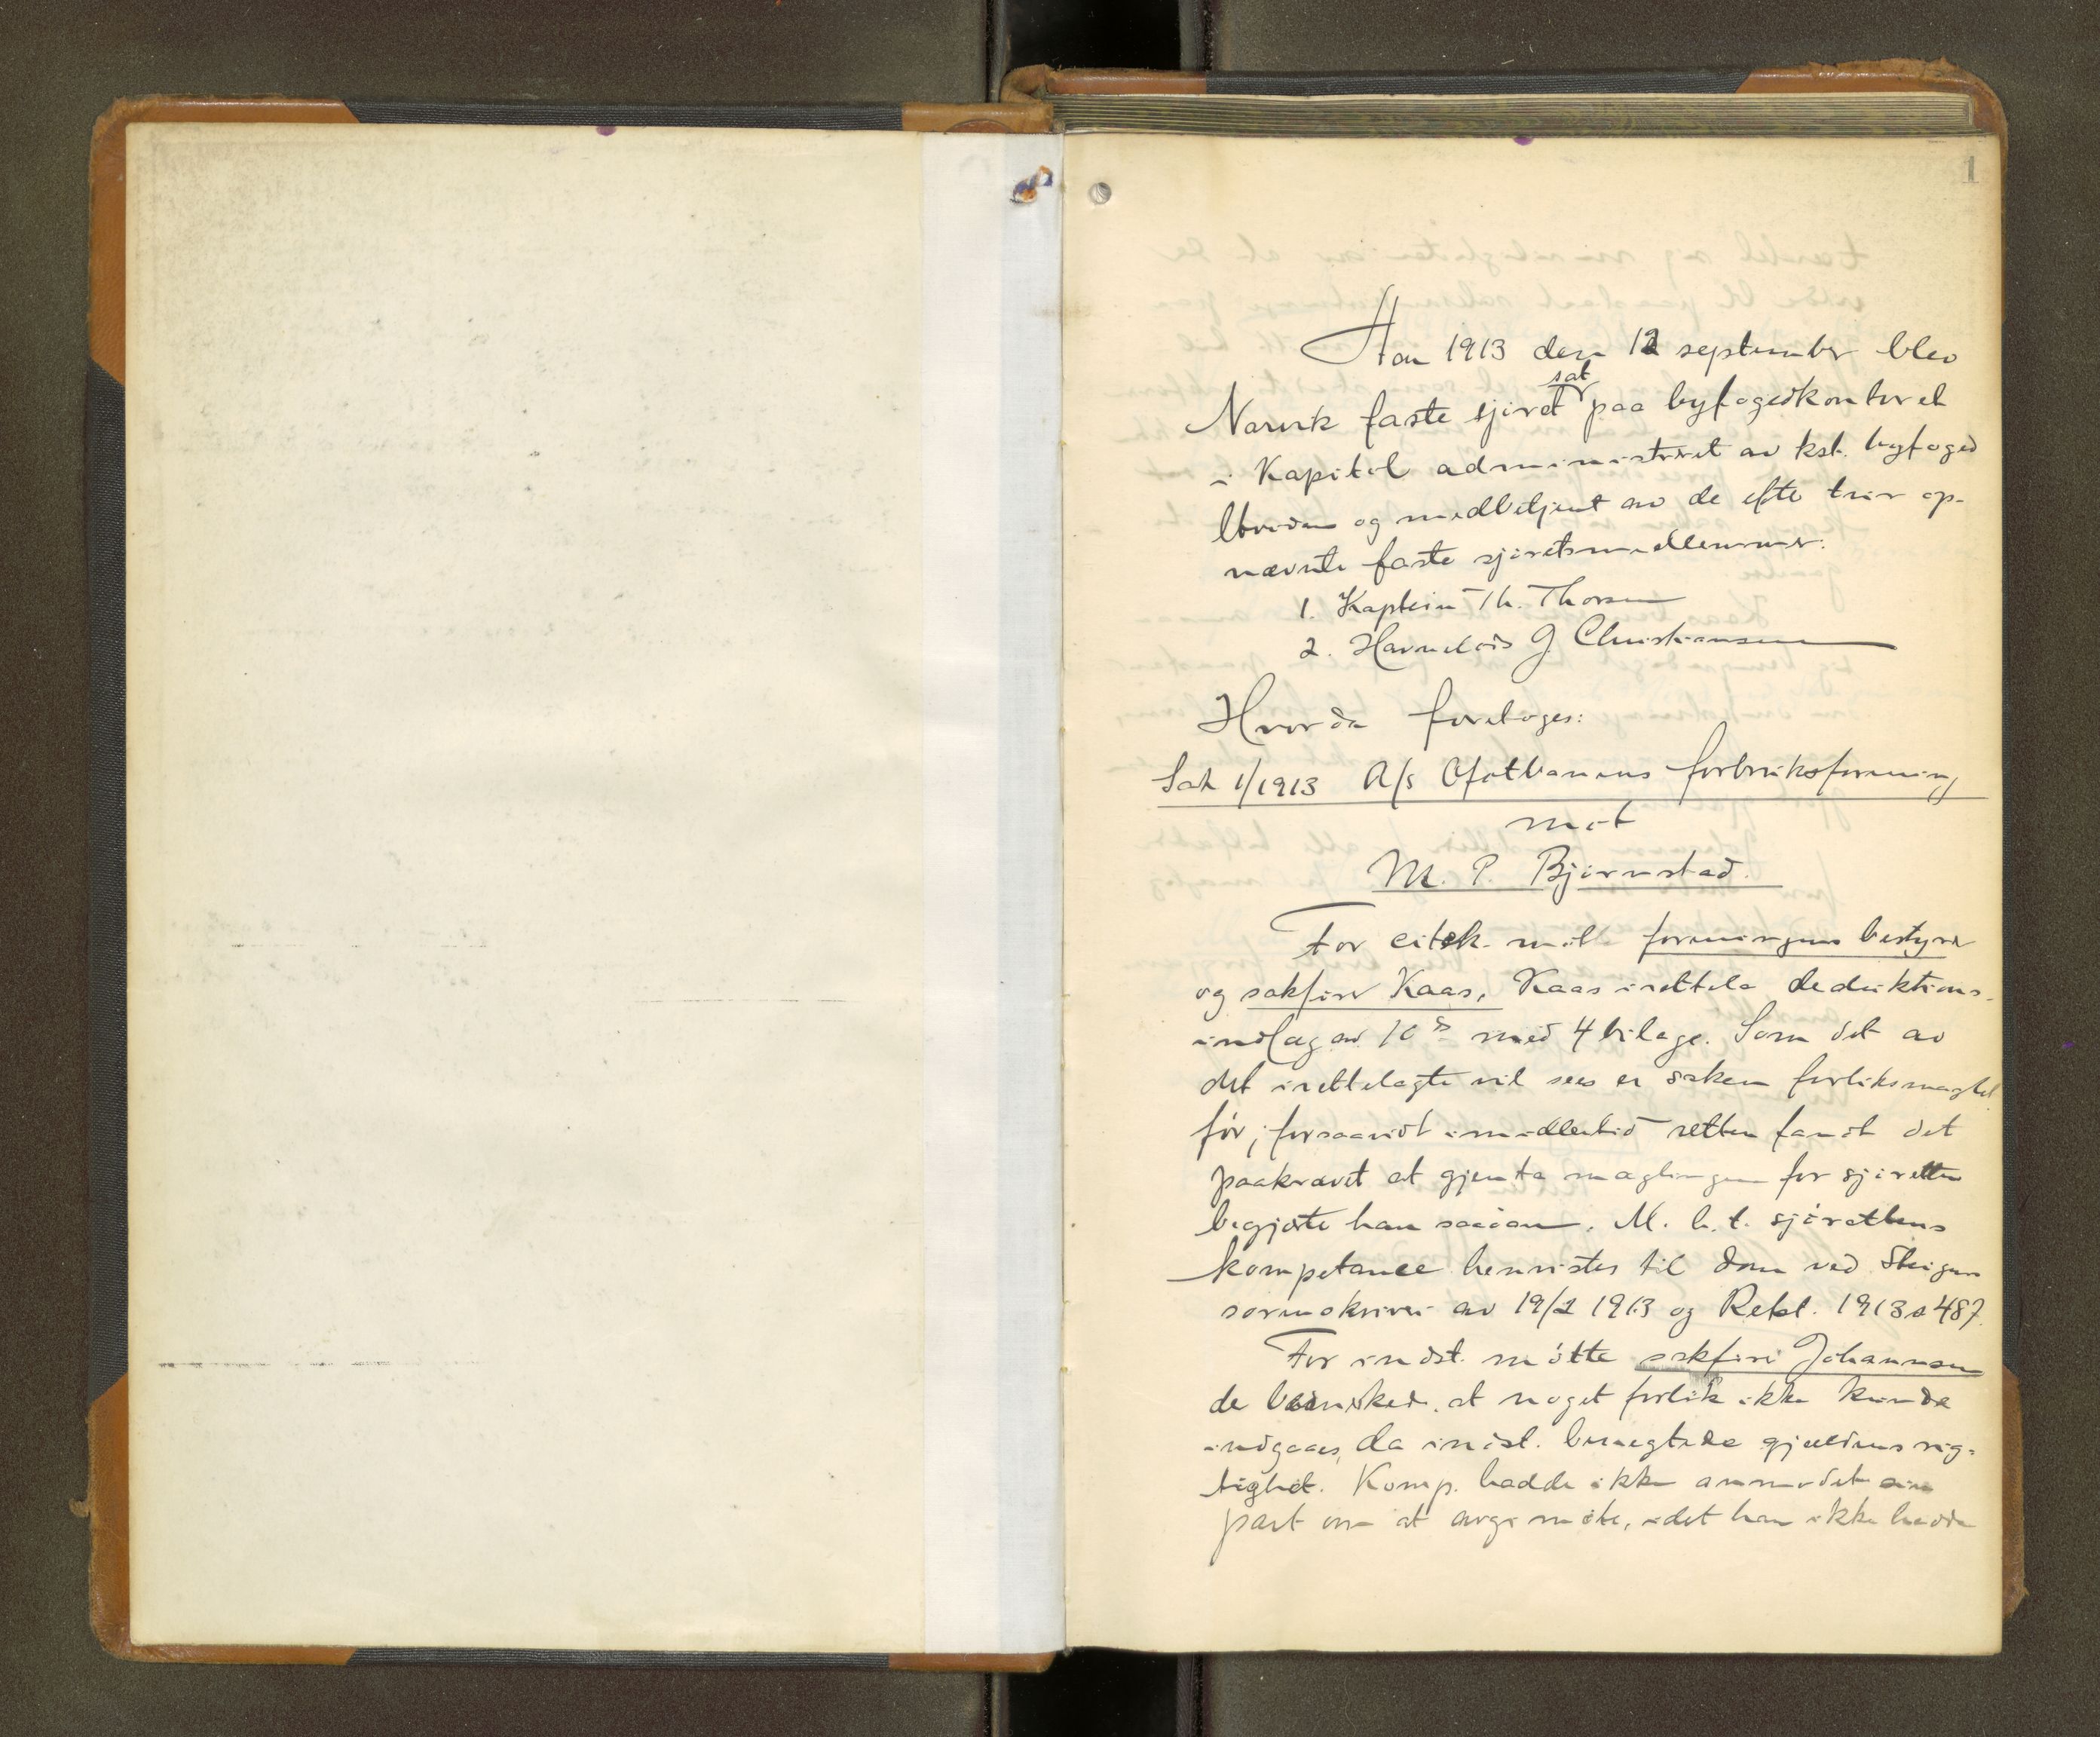 1
Aar 1913 den 12 september blev
sat
Narvik faste sjøret paa byfogedkontoret
i Kapitol administreret av kst. byfoged
og medbetjent av de efter tur op-
nævnte faste sjøretsmedlemmer:
1. Kaptein Th. Thorsen
2. Havnelods J. Christiansen
Hvorda foretoges:
Sak 1/1913 A/s Ofotbanens forbruksforening
mot
M. P. Bjørnstad.
For citsk. møtte foreningens bestyrer
og sakfører Kaas. Kaas irettela deduktions-
indlæg av 10 ds med 4 bilage. Som det av
det irettelagte vil sees er saken forliksmæglet
før; forsaavidt imidlertid retten fandt det
paakrævet at gjenta mæglingen for sjøretten
begjærte han saadan. M. h. t. sjørettens
kompetance henvistes til dom ved Steigen
sorenskriveri av 19/2 1913 og Retst. 1913 s 487.
For indst. møtte sakfører Johannesen
der bemerket, at noget forlik ikke kunde
indgaaes, da indst. benegtede gjældens rig-
tighet. Komp. hadde ikke anmodet sin
part om at avgi møte, idet han ikke hadde